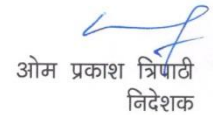 ओम प्रकाश त्रिपाठी
निदेशक